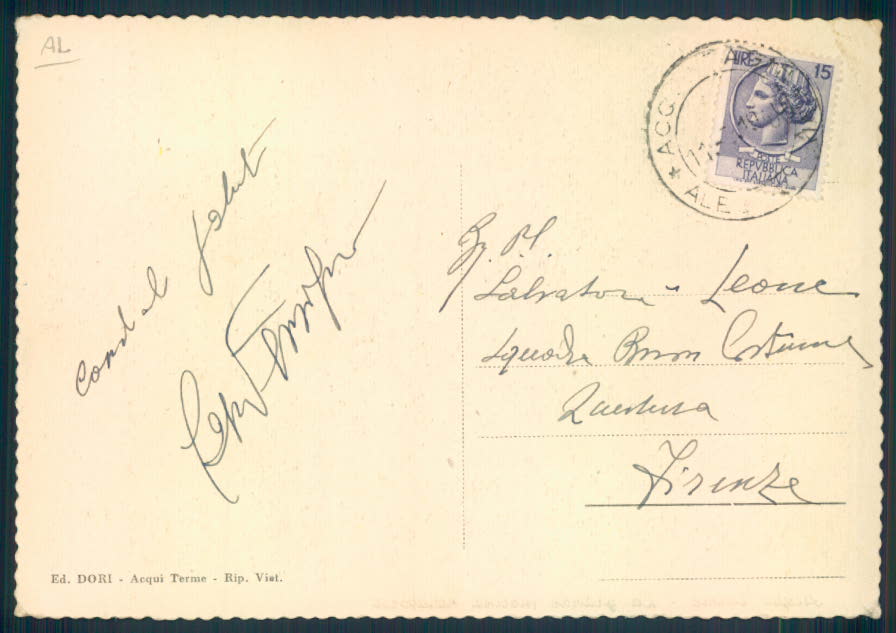 AL
Cordiali saluti
ACQ
ALE
LIRE 15
POSTE
REPVBBLICA
ITALIANA
Salvatore Leone
Squadra Buon Costume
Questura
Firenze
Ed. DORI - Acqui Terme - Rip. Viet.